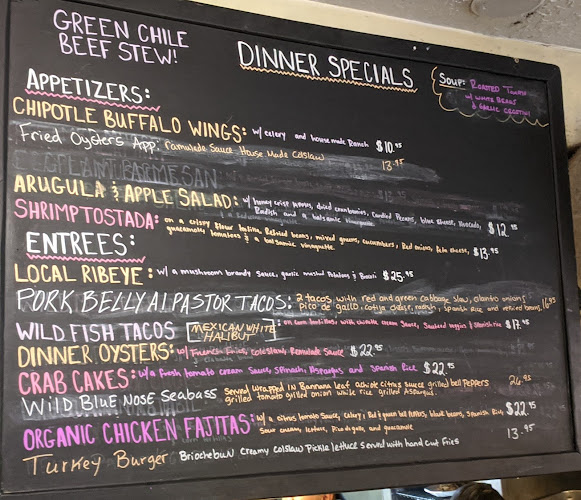 GREEN CHILE
BEEF STEW!
DINNER SPECIALS
SOUP: ROASTED TOMATO
w/ WHITE BEANS
& GARLIC CROSTINI
APPETIZERS:
CHIPOTLE BUFFALO WINGS: w/ celery and house made Ranch $10.95
Fried Oysters App. ramulade Sauce House Made Colslaw 13.95
EGGPLANT PARMESAN
ARUGULA & APPLE SALAD: w/ honey crisp apples, dried cranberries, Candied Pecans, blue cheese, Avocado,
Radish and a balsamic vinaigrette $12.95
SHRIMP TOSTADA: on a crispy flour tortilla, Refried beans, mixed greens, cucumbers, Red onions, feta cheese,
guacamole, tomatoes & a balsamic vinaigrette. $13.95
ENTREES:
LOCAL RIBEYE: w/ a mushroom brandy Sauce, garlic mashed Potatoes & $25.95
PORK BELLY Al PASTOR TACOS: 2 tacos, with red and green cabbage slaw, cilantro onions
Pico de gallo, cotija cheese, radish, spanish rice and refried beans 16.95
WILD FISH TACOS MEXICAN WHITE
HALIBUT 2 on corn tortillas with chipotle cream Sauce, Sauteed veggies & Spanish rice $17.95
DINNER OYSTERS: w/ French Fries, coleslaw, Remulade Sauce $22.95
CRAB CAKES: w/ a fresh tomato cream Sauce, Spinach, Asparagus and Spanish Rice $22.95
Wild Blue Nose Seabass Served wrapped in Bannana leaf achiote citrus sauce grilled bell peppers
grilled tomato grilled onion white rice grilled Asparagus. 26.95
ORGANIC CHICKEN FAJITAS: w/ a citrus tomato Sauce, Celery, Red & green bell peppers, black beans, Spanish Rice,
Sour cream, lettuce, Pico de gallo, and guacamole $22.95
Turkey Burger Briochebun creamy colslaw Pickle lettuce served with hand cut fries 13.95